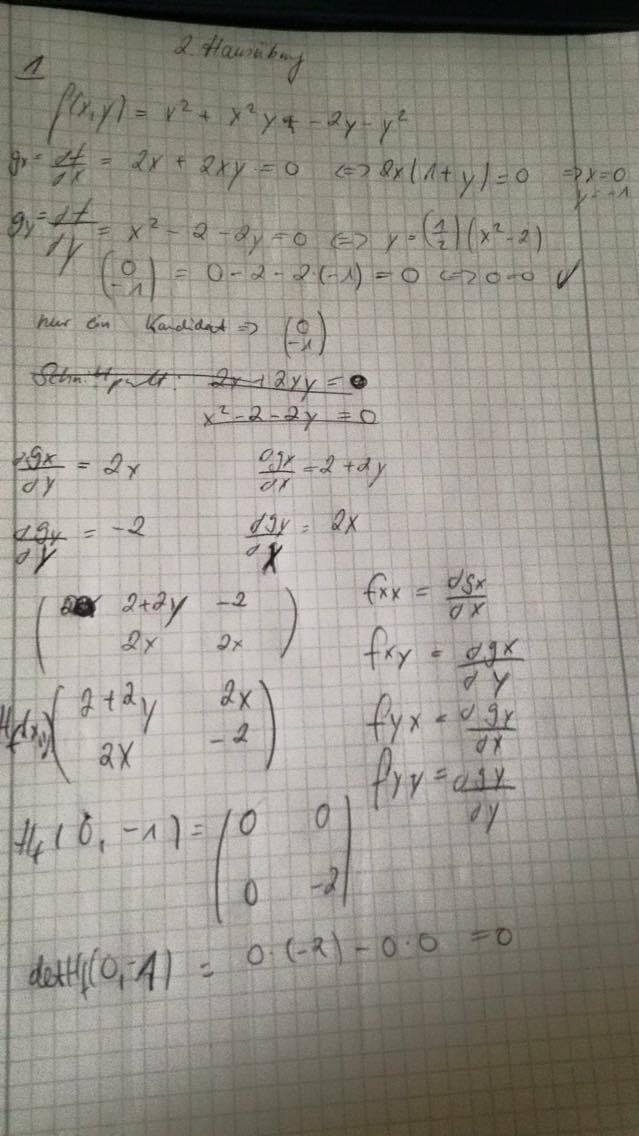 2. Hausübung
1
f(x,y) = x² + x²y - 2y - y²
gx = df/dx = 2x + 2xy = 0 <=> 2x(1+y) = 0 => x=0
y=-1
gy = df/dy = x² - 2 - 2y = 0 <=> y = (1/2)(x²-2)
(0 -1) = 0 - 2 - 2·(-1) = 0 <=> 0=0 ✓
nur ein Kandidat => (0 -1)
Schnittpunkt: 2x + 2xy = 0
x² - 2 - 2y = 0
dgx/dy = 2x dgx/dx = 2+2y
dgy/dy = -2 dgy/dx = 2x
( 2+2y -2
2x 2x )
fxx = dgx/dx
fxy = dgx/dy
Hf(x,y) ( 2+2y 2x
2x -2 )
fyx = dgy/dx
fyy = dgy/dy
Hf(0,-1) = ( 0 0
0 -2 )
det Hf(0,-1) = 0·(-2) - 0·0 = 0